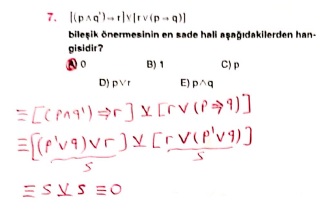 7. [(p∧q')⇒r]⊻[r∨(p⇒q)]
bileşik önermesinin en sade hali aşağıdakilerden han-
gisidir?
A) 0 B) 1 C) p
D) p∨r E) p∧q
≡[(p∧q')⇒r] ⊻ [r∨(p⇒q)]
≡[(p'∨q)∨r] ⊻ [r∨(p'∨q)]
S S
≡ S ⊻ S ≡ 0